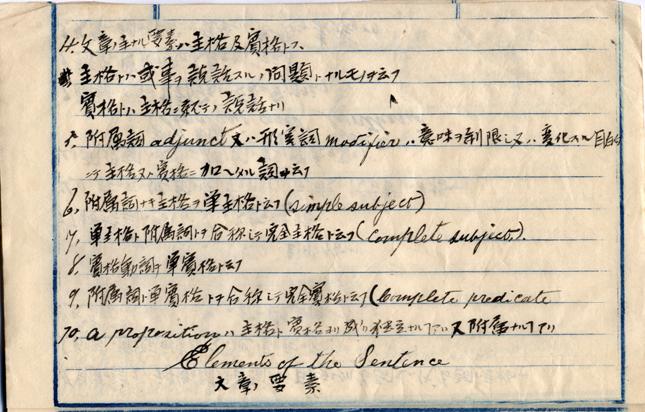 4. 文章ノ主ナル要素ハ主格及賓格トス
主格トハ或事ヲ説話スルノ問題トナルモノヲ云フ
賓格トハ主格ニ就テノ説話ナリ
5. 附属詞 adjunct 又ハ形容詞 modifier ハ意味ヲ制限シ又ハ変化スル目的
ニテ主格又ハ賓格ニ加ヘタル詞ヲ云フ
6. 附属詞ナキ主格ヲ単主格ト云フ (simple subject)
7. 単主格ト附属詞トヲ合称シテ完全主格ト云フ (complete subject).
8. 賓格動詞ヲ単賓格ト云フ
9. 附属詞ト単賓格トヲ合称シテ完全賓格ト云フ (Complete predicate
10. a proposition ハ主格ト賓格ヨリ成リ独立ナルアリ又附属ナルアリ
Elements of the Sentence
文章ノ要素